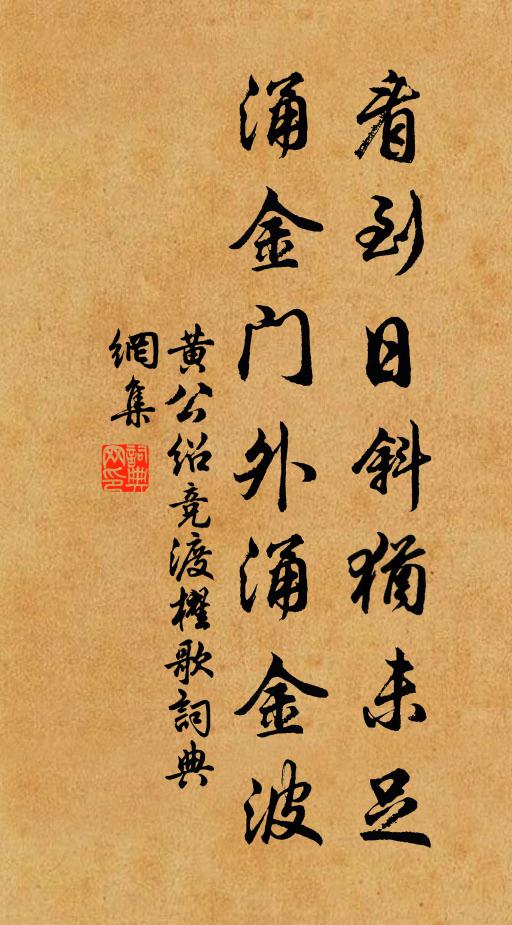 看到日斜猶未足
涌金门外涌金波
黄公绍竞渡櫂歌詞典
網集
詞典
网印